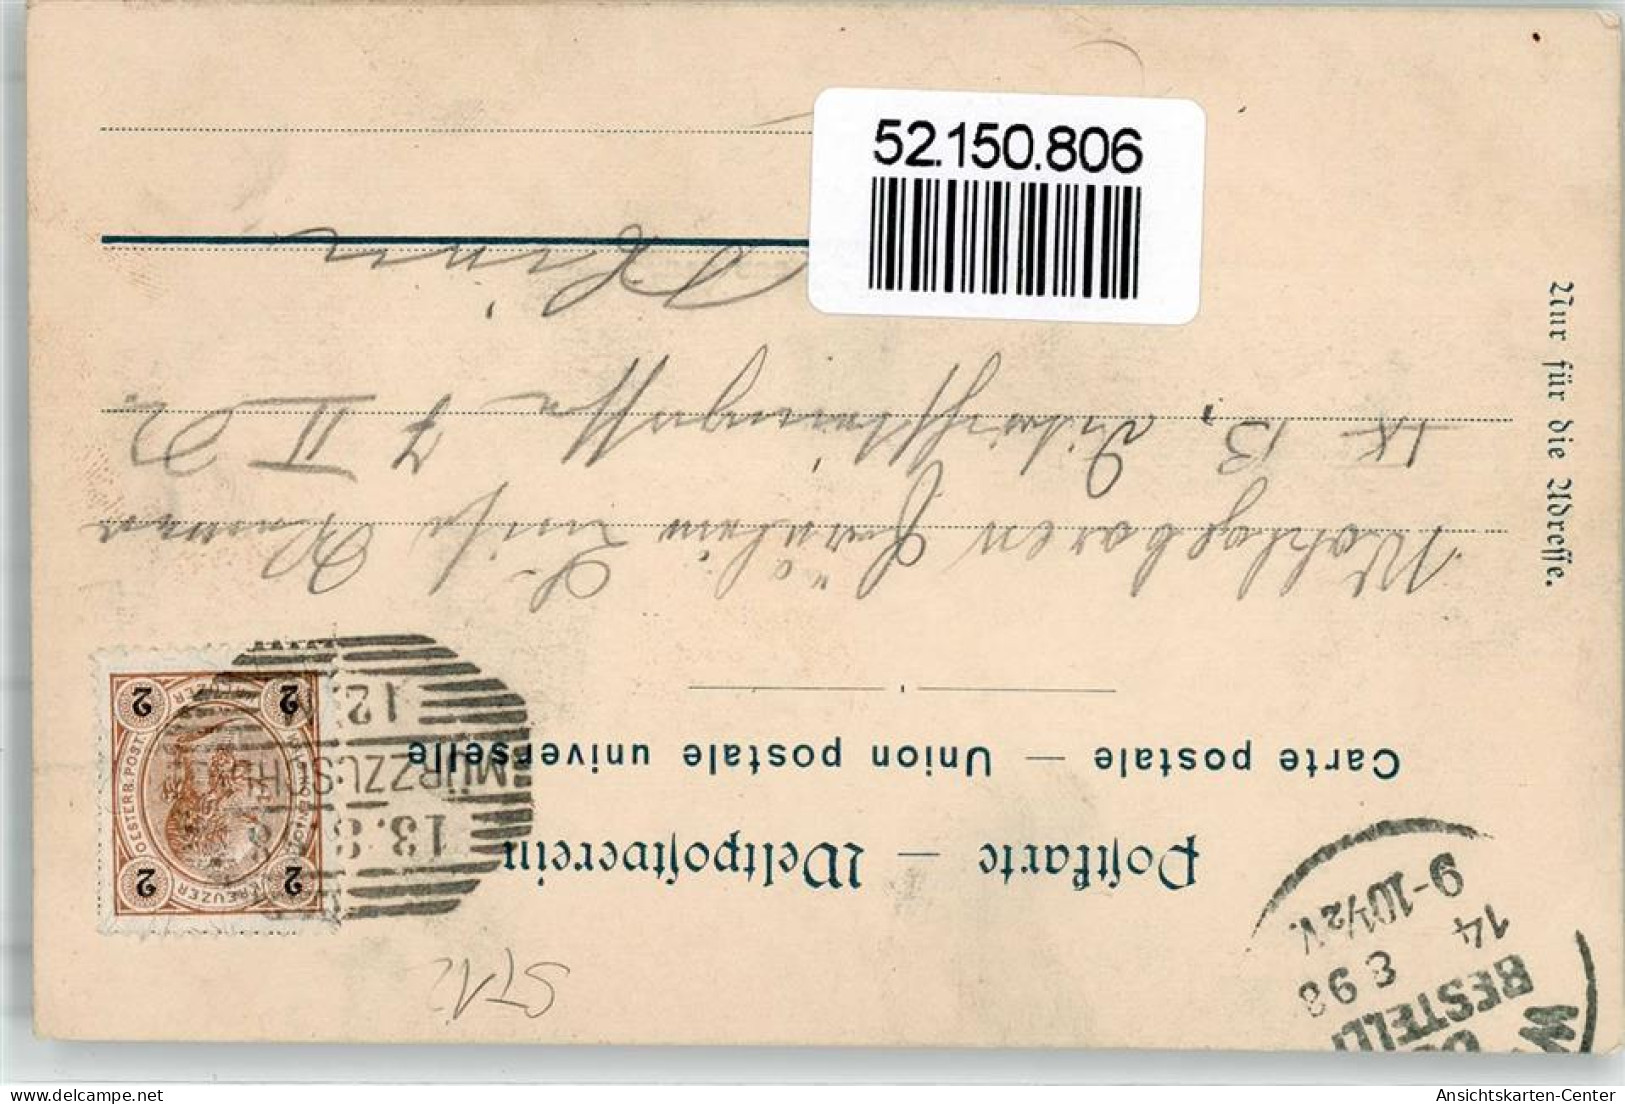 52.150.806
Postkarte — Weltpostverein
Carte postale — Union postale universelle
Wohlgeboren Fräulein Luise
IX B, 7 II
Wien
Nur für die Adresse.
2 2
2 2
KREUZER
OESTERR. POST
13. 8
MÜRZZUSCHL
12.
BESTELL
14 8 98
9-10½V.
ST12
Ansichtskarten-Center